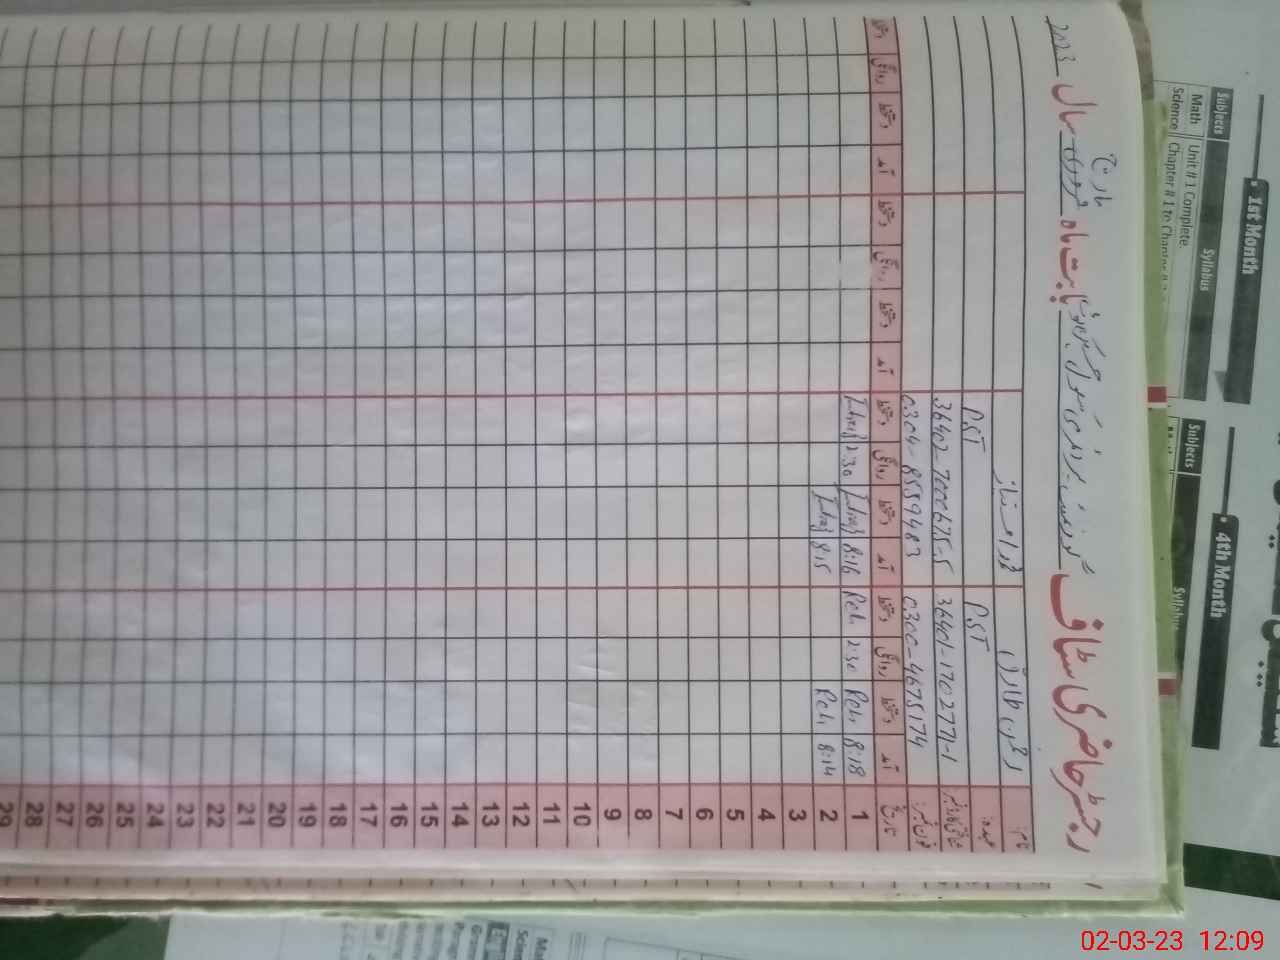 رجسٹر حاضری سٹاف گورنمنٹ پرائمری سکول بابت ماہ فروری سال 2023
مارچ
نام
عہدہ PST PST
شناختی کارڈ نمبر 36401-1702771-1 36402-7000675-5
فون نمبر 0300-4675174 0304-8559483
تاریخ آمد دستخط روانگی دستخط آمد دستخط روانگی دستخط آمد دستخط روانگی دستخط آمد دستخط روانگی دستخط
1 8:18 Reh 2:30 Reh 8:16 Imtiaz 2:30 Imtiaz
2 8:14 Reh 8:15 Imtiaz
3
4
5
6
7
8
9
10
11
12
13
14
15
16
17
18
19
20
21
22
23
24
25
26
27
28
29
1st Month
Subjects Syllabus
Math Unit # 1 Complete.
Science Chapter # 1 to Chapter #
4th Month
Subjects Syllabus
02-03-23 12:09